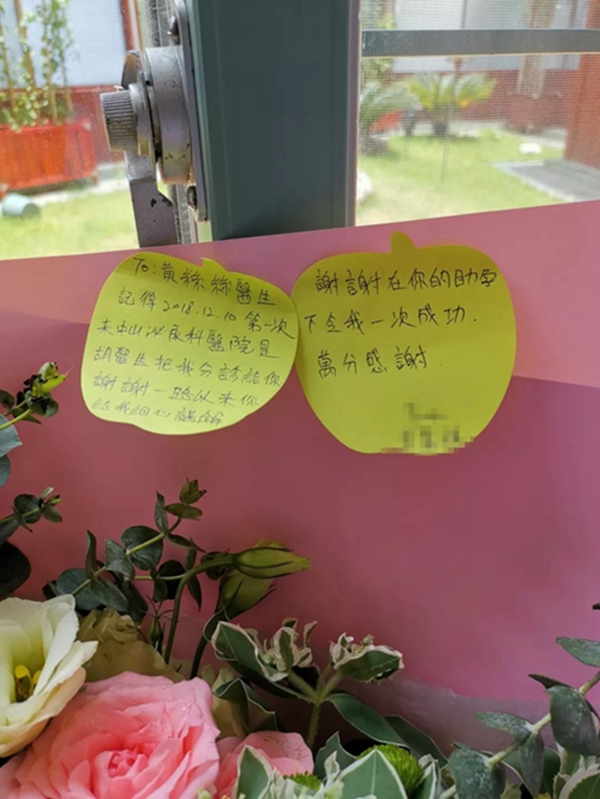 To:黃絲絲醫生
記得2018.12.10第一次
來中山泌尿科醫院是
胡醫生把我分診給你
謝謝一路以來你
給我細心講解
謝謝在你的助孕
下令我一次成功.
萬分感謝